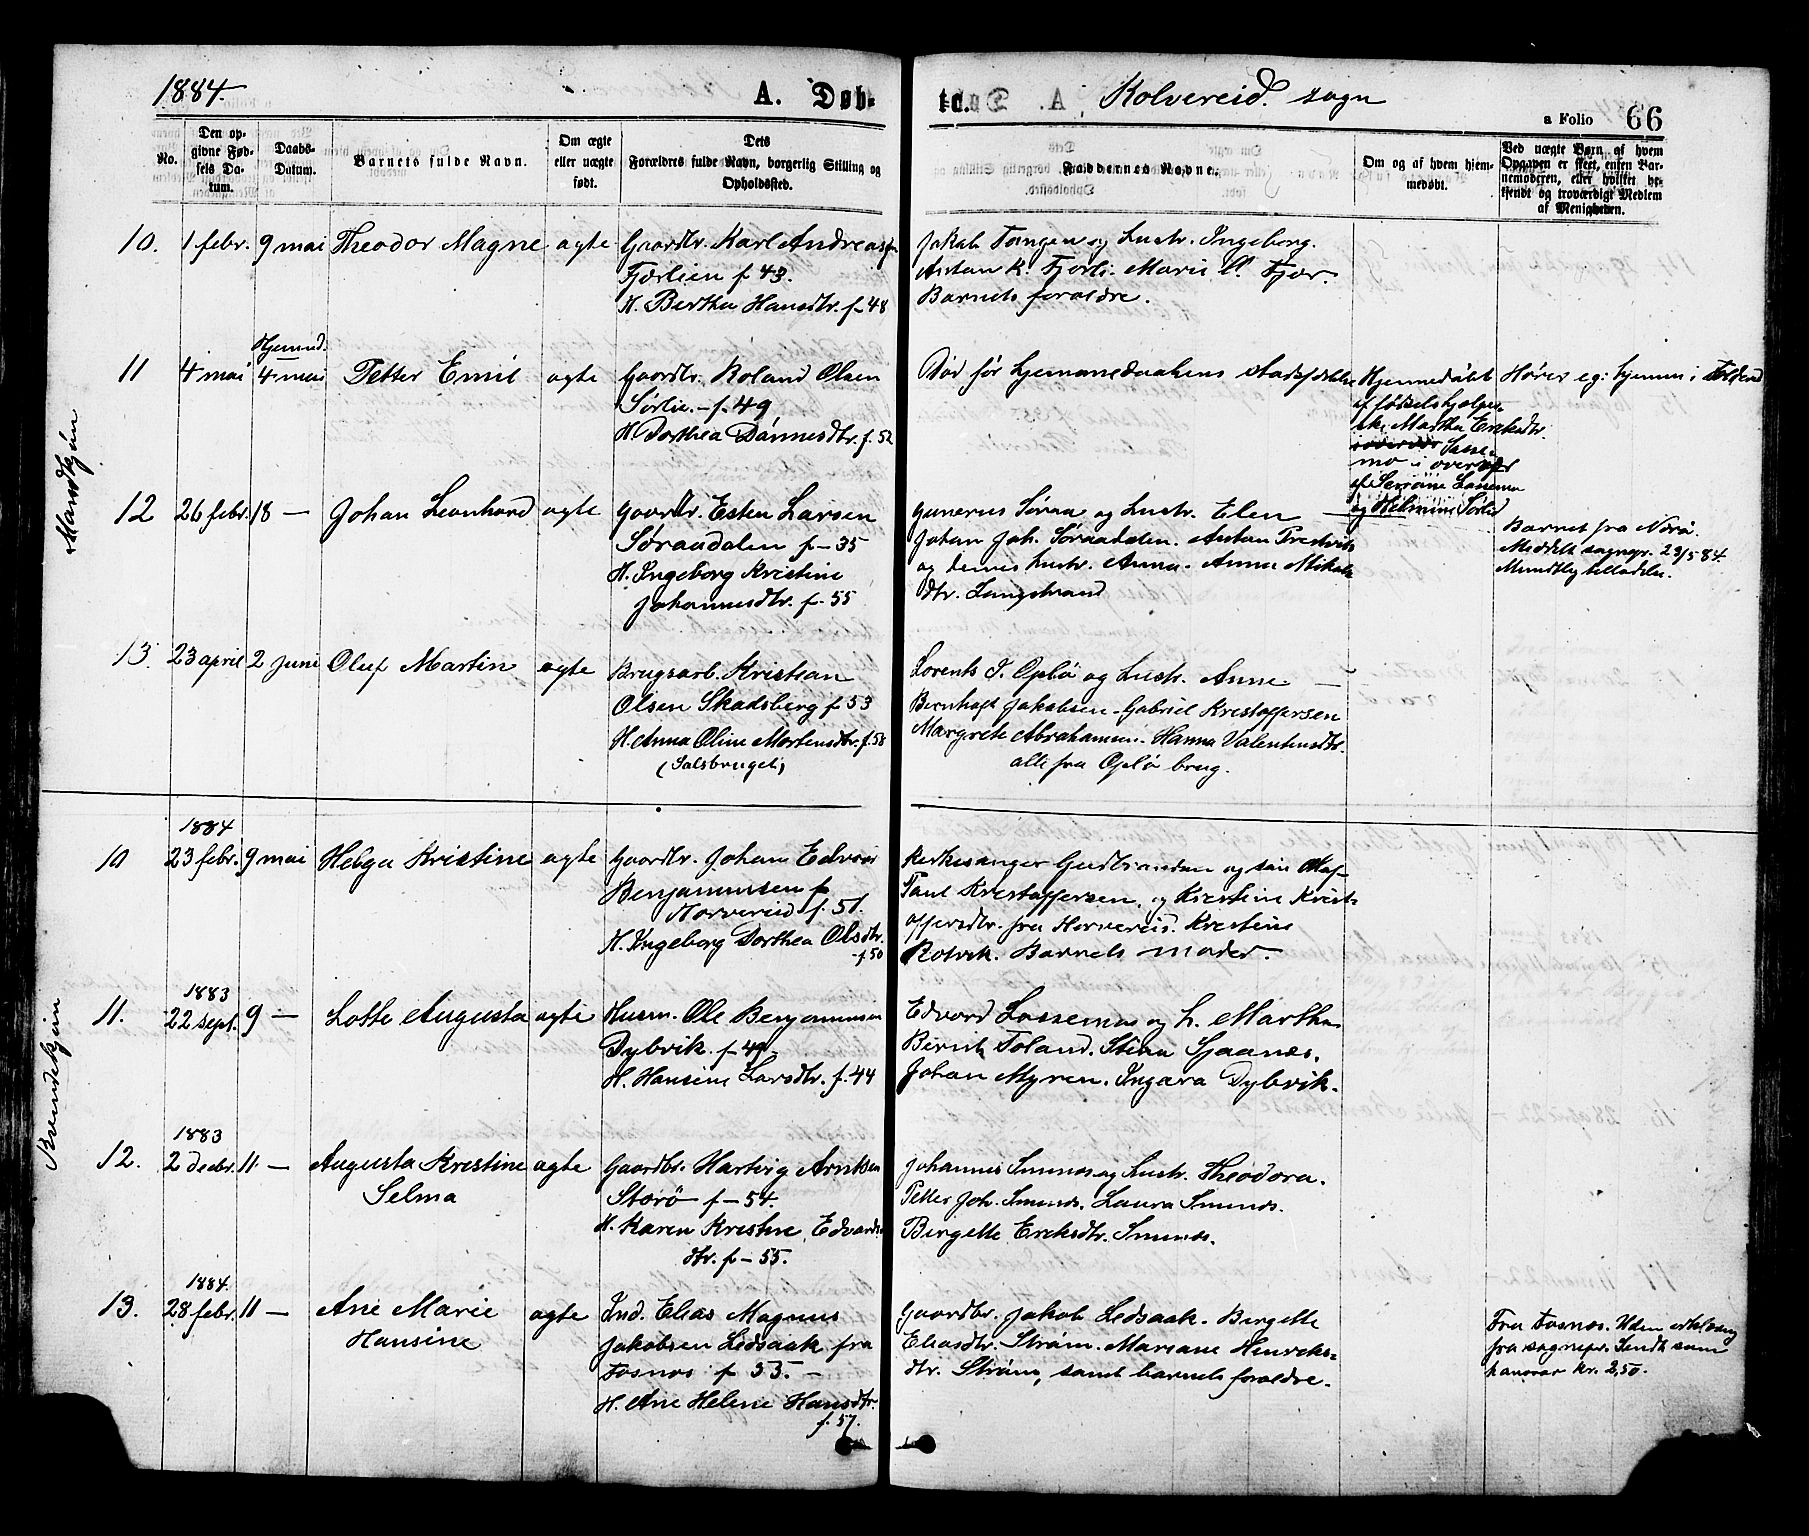 1884.
A. Døb-
te.
Kolvereid. sogn
a Folio 66
No.
Den op-
givne Fød-
sels Da-
tum.
Daabs-
Datum.
Barnets fulde Navn.
Om ægte
eller uægte
født.
Dets
Forældres fulde Navn, borgerlig Stilling og
Opholdssted.
Faddernes Navne.
Om og af hvem hjem-
medøbt.
Ved uægte Børn af hvem
Opgaven er skeet, enten Bar-
nemoderen, eller hvilket be-
kjendt og troværdigt Medlem
af Menigheden.
Mandkjøn
10. 1 febr. 9 mai Theodor Magne ægte
Gaardbr. Karl Andreassen
Fjærlien f 43.
H. Bertha Hansdtr. f-48
Jakob Tangen og hustr. Ingeborg.
Anton K. Fjerli. Marie Fjær.
Barnets forældre.
11 4 mai Hjemmd. 4 mai Petter Emil ægte
Gaardbr. Roland Olsen
Sørlie. - f. 49.
H. Dorthea Dønnesdtr. f. 52
Død før hjemmedaabens stadfæstelse
Hjemmedøbt
af fødselshjælper-
ske Martha Ericksdtr.
Lasse-
mo i overvær
af Serine Lassemo
og Helmine Sørlie
Hører eg: hjemme i Foldereid
12 26 febr. 18 — Johan Leonhard ægte
Gaardbr. Esten Larsen
Søraadalen f-35
H. Ingeborg Kristine
Johannesdtr. f-55
Gunerius Søraa og hustr. Elen
Johan Joh. Søraadalen. Anton Prestvik
og dennes hustr. Anna. Anna Mikals
dtr. Langstrand
Barnet fra Nærø.
Meddelt sognepr. 23/5 84.
Mundtlig tilladelse.
13. 23 april 2 juni Oluf Martin ægte
Brugsarb. Kristian
Olsen Skadsberg f 53
H. Anna Oline Mortensdtr. f. 58
(Salsbruget)
Lorents J. Oplø og hustr. Anne —
Bernhoft Jakobsen. Gabriel Kristoffersen
Margrete Abrahamsen. Hanna Valentinsdtr.
alle fra Opløbrug.
Kvindekjøn
10 1884 23 febr. 9 mai Helga Kristine ægte
Gaardbr. Johan Edvar
Benjaminsen f
Horvereid f. 51.
H. Ingeborg Dorthea Olsdtr.
f 50
Kirkesanger Gudbrandsen og søn Olaf
Paul Kristoffersen, og Kirstine Krist-
offersdtr. fra Horvereid. Kristine
Rotvik. Barnets moder.
11. 1883 22 sept. 9 — Lotte Augusta ægte
Husm. Ole Benjaminsen
Dybvik. f-49.
H. Hansine Larsdtr. f. 44
Edvard Lassemo og h. Martha
Bernt Foland. Stina Sjaanes.
Johan Myren. Ingera Dybvik.
12. 1883 2 decbr. 11. — Augusta Kristine
Selma ægte
Gaardbr. Hartvig Arntsen
Storø f-54.
H. Karen Kristine Edvards
dtr. f-55.
Johannes Smines og hustr. Theodora.
Petter Joh. Smines. Laura Smines.
Bergette Ericksdtr. Smines.
13. 1884. 28 febr. 11 — Ane Marie
Hansine ægte
Ind. Elias Magnus
Jakobsen Ledsaak fra
Fosnes f 55. —
H. Ane Helene Hansdtr.
f. 57.
Gaardbr. Jakob Ledsaak. Bergette
Eliasdtr. Strøm. Mariane Henriks-
dtr. Strøm, samt barnets forældre.
Fra Fosnes. Uden erklæring
fra sognepr. Sendt som
kr. 2,50.